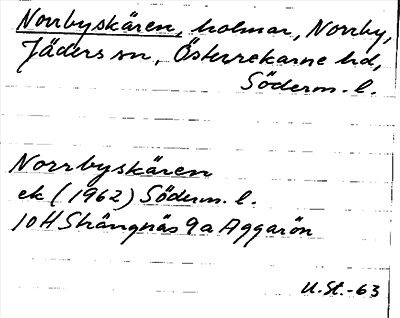 Norrbyskären, holmar, Norrby,
Jäders sn, Österrekarne hd,
Söderm. l.
Norrbyskären
ek (1962) Söderm. l.
10H Strängnäs 9a Aggarön
U.St.-63